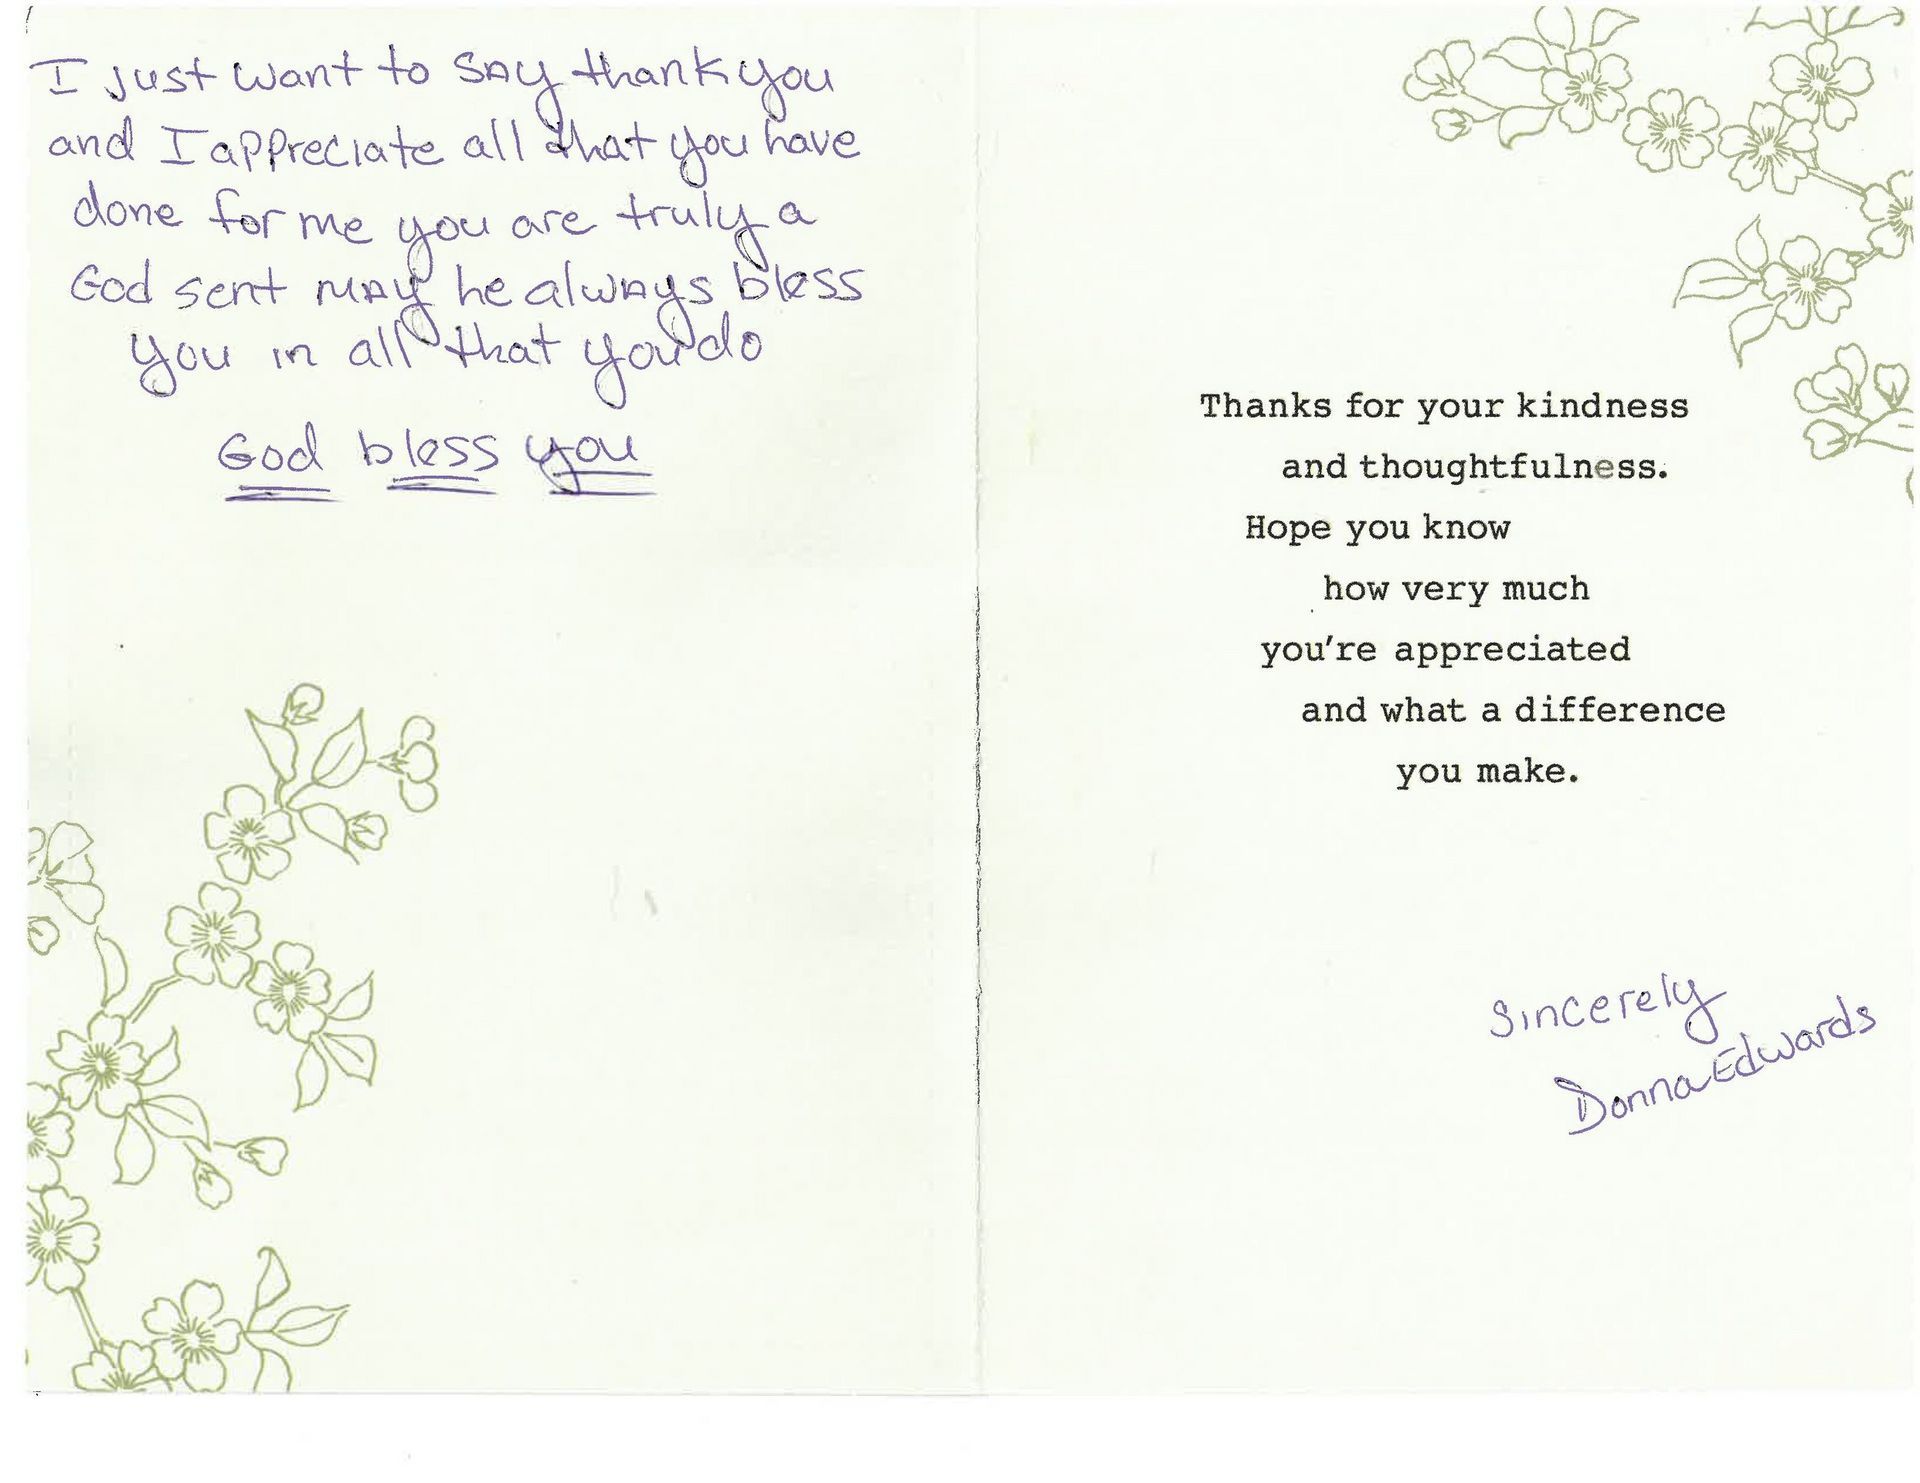 I just want to SAY thank you
and I appreciate all that you have
done for me you are truly a
God sent MAY he always bless
you in all that you do
God bless you
Thanks for your kindness
and thoughtfulness.
Hope you know
how very much
you're appreciated
and what a difference
you make.
Sincerely
Donna Edwards